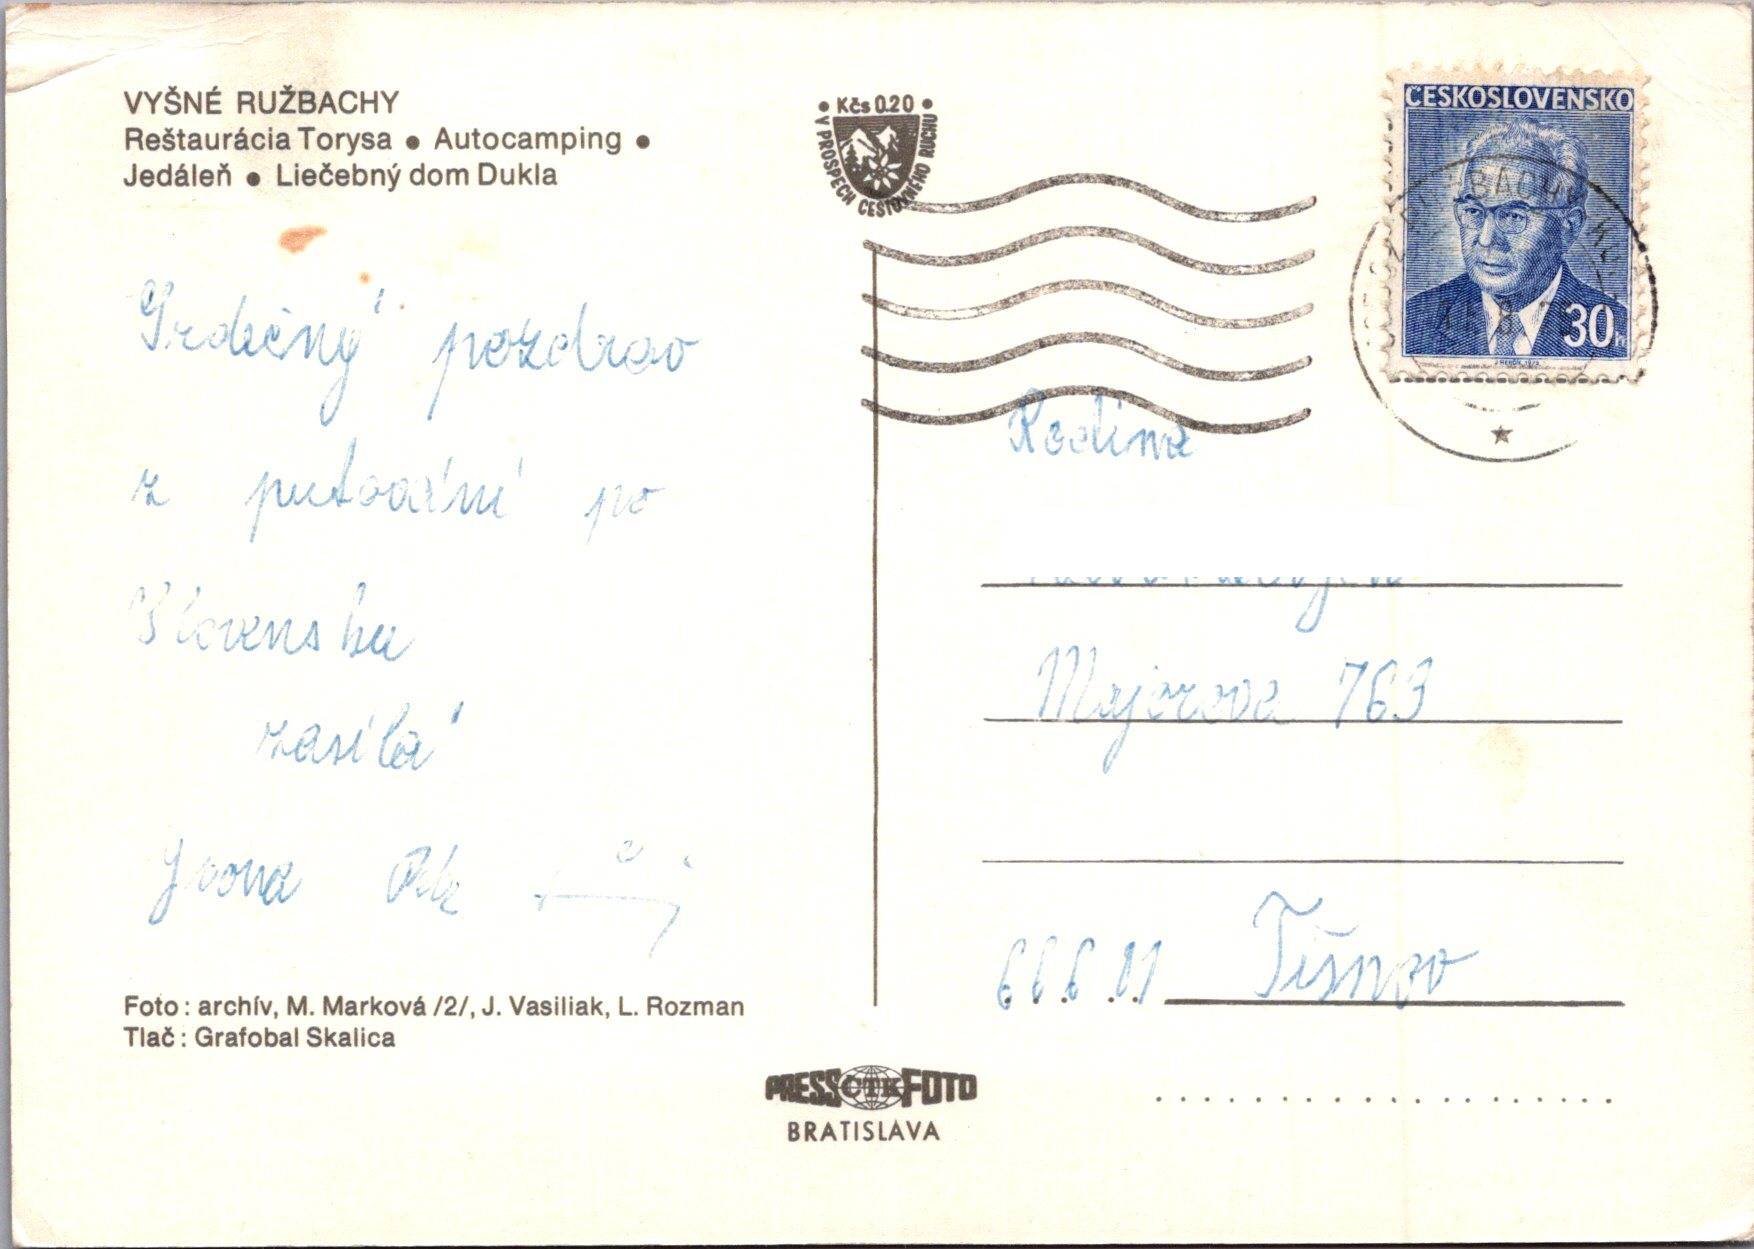 VYŠNÉ RUŽBACHY
Reštaurácia Torysa ● Autocamping ●
Jedáleň ● Liečebný dom Dukla
Srdečný pozdrav
z putování po
Slovensku
zasílá
Ivona
Foto: archív, M. Marková /2/, J. Vasiliak, L. Rozman
Tlač: Grafobal Skalica
• Kčs 0.20 •
V PROSPECH CESTOVNÉHO RUCHU
ČESKOSLOVENSKO
30h
Rodina
Majorova 763
666 01 Tišnov
PRESS ČTK FOTO
BRATISLAVA